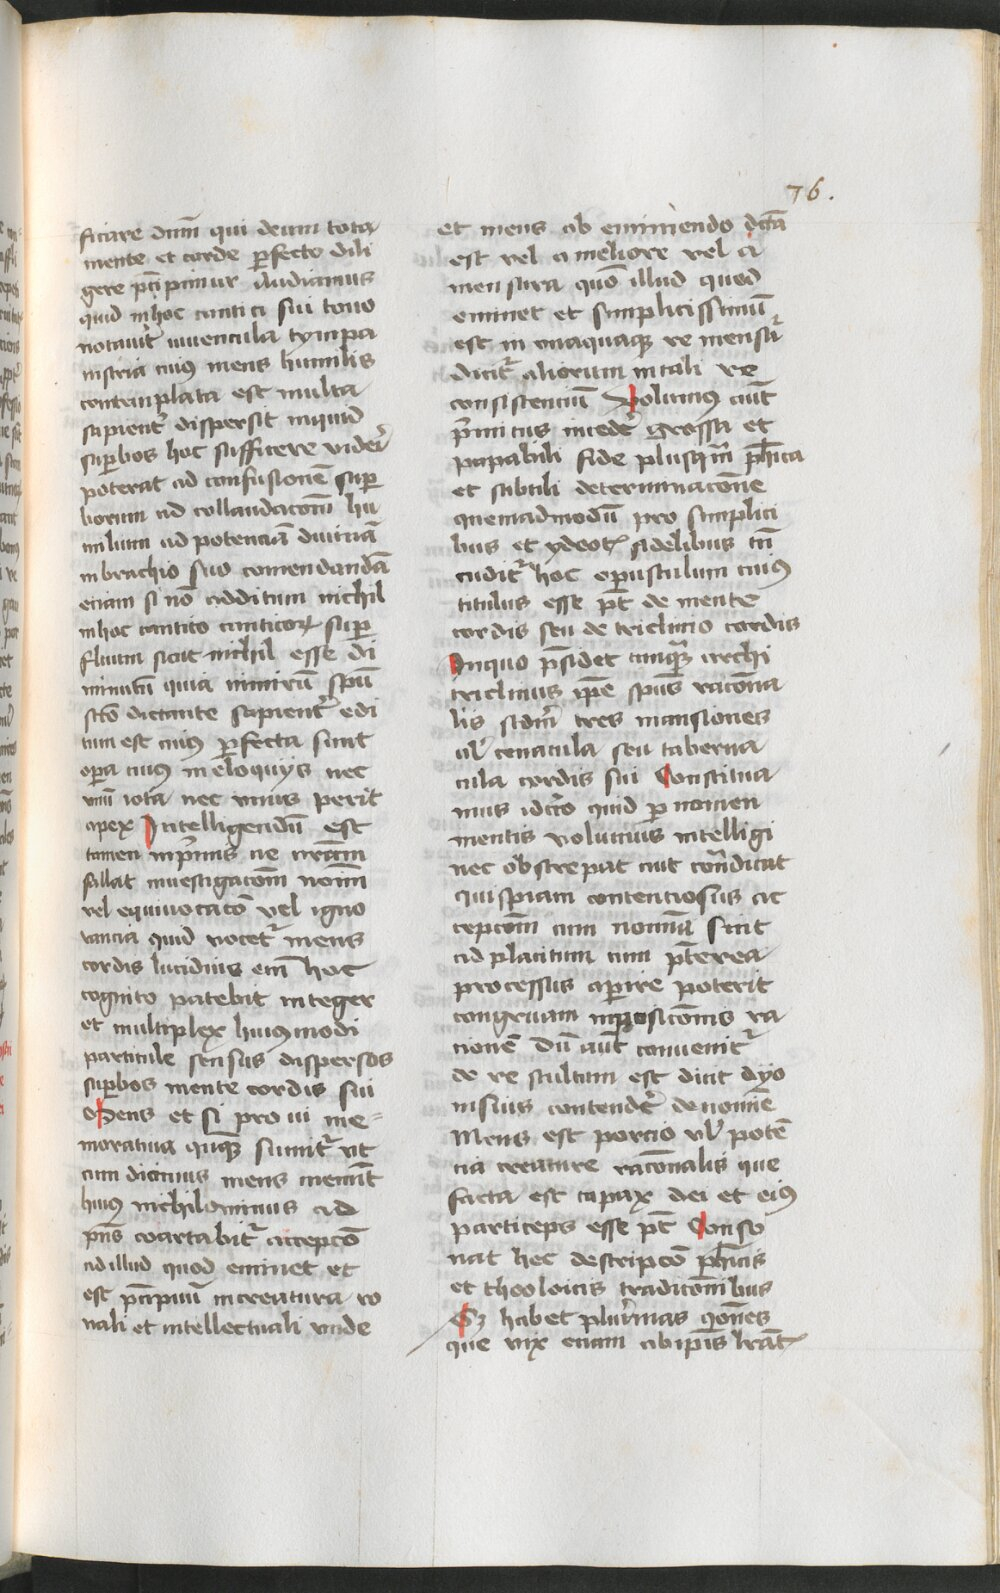 76.
ficare dnm̄ qui deum tota
mente et corde ꝑfecto dili
gere p̄cipimur Audiamus
quid in hoc cantici sui tono
notauit iuuencula tympa
nistria cuiꝰ mens humilis
contemplata est multa
sapient̄ dispersit inquid
suꝑbos hoc sufficere videri
poterat ad confusionē suꝑ
biorum ad collaudacōm hu
milium ad potenciā diuinā
in brachio suo comendandā
etiam si nō additum nichil
in hoc cantico canticoꝝ suꝑ
fluum sicut nichil esse di
minutū quia nimirū spū
scō dictante sapient̄ edi
tum est cuiꝰ ꝑfecta sunt
oꝑa cuius in eloquijs nec
vnū iota nec vnus perit
apex Intelligendū est
tamen inp̄mis ne nr̄am
fallat inuestigacōm noīm
vel equiuocacō vel igno
rancia quid vocet᷑ mens
cordis lucidius em̄ hoc
cognito patebit integer
et multiplex huiꝰmodi
particule sensus dispersos
suꝑbos mente cordis sui
Mens et si pro vi me-
moratiua qn̄qꝫ sumit᷑ vt
cum dicimus mens meīit
huiꝰ nichilominus ad
pn̄s coartabit᷑ accepcō
ad illud quod eminet et
est p̄cipuū in creatura ro
nali et intellectuali vnde
et mens ab eminendo dc̄ā
est vel a meliore vel a
mensura quō illud quod
eminet et simplicissimū
est in vnaquaqꝫ re mensura
dicit᷑ aliorum in tali re
consistencium Volumꝰ aūt
p̄mitus incedere grossa et
papabili fide plusqm̄ ph̄ica
et subtili determinacōne
quemadmodū pro simplici
bus et ydeotꝭ fidelibus
cudit᷑ hoc opusculum cuiꝰ
titulus esse pt̄ de mente
cordis seu de triclinio cordis
In quo p̄sidet tanquā archi
triclinus ip̄e spūs racōna
lis scdm̄ tres mansiones
vl̓ cenacula seu taberna
cula cordis sui Constitua
mus idcirco quid ꝑ nomen
mentis volumus intelligi
nec obstrepat aut cōtradicat
quispiam contenciosus ac
cepcōm cum nomina sint
ad placitum cum p̄terea
processus aperire poterit
congruam inposicōnis ra
cionē Dū aūt conuenit᷑
de re stultum est dicit dyo
nisius contendere de nomīe
Mens est porcio vl̓ potē
cia creature racōnalis que
facta est capax dei et eiꝰ
particeps esse pt̄ Conso
nat hec descripcō ph̄icis
et theoloicis tradicōnibus
Sꝫ habet plurimas qōnes
que vix etiam ab ip̄is lr̄atꝭ